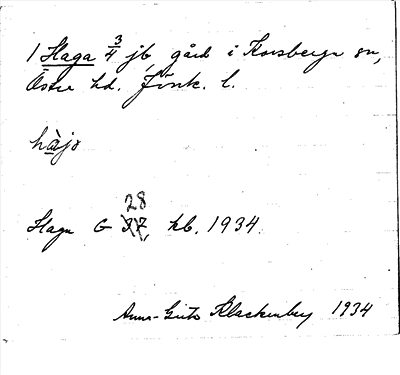 1 Haga 3/4 jb, gård i Korsberga sn,
Östra hd. Jönk. l.
hàjɐ
Haga G 28 kb. 1934.
Anna-Greta Klackenberg 1934